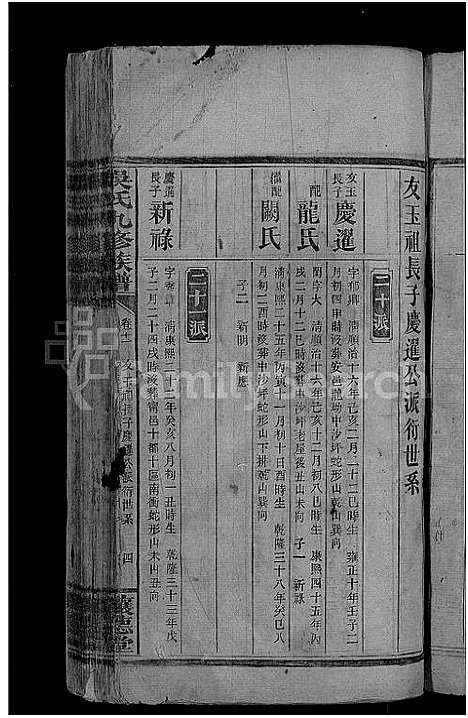 友玉祖長子慶暹公派衍世系
二十派
友玉長子 慶暹
字郁卿 清順治十六年己亥二月二十二巳時生 雍正十年壬子二
月初四申時沒葬安邑
中沙坪蛇形山乾山巽向
配 龍氏
蘭字大 清順治十六年己亥十二月初八巳時生 康熙四十五年丙
戌二月十二巳時沒葬中沙坪老屋後丑山未向 子一 新祿
繼配 闕氏
清康熙二十五年丙寅十一月初十日酉時生 乾隆三十八年癸巳八
月初二酉時沒葬中沙坪蛇形山下排乾山巽向
子二 新明 新應
二十一派
慶暹長子 新祿
清康熙二十二年癸亥八月初一丑時生 乾隆三十三年戊
子二月二十四戌時沒葬甯邑十都十區南衝蛇形山未山丑向
吳氏九修族譜
友玉祖長子慶暹公派衍世系
四
懷德堂